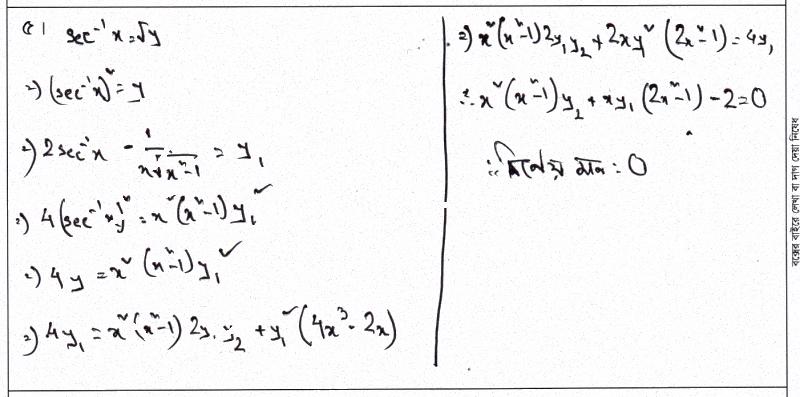 ৫।  sec⁻¹x = √y
⇒) (sec⁻¹x)² = y
⇒) 2sec⁻¹x · 1/(x√(x²-1)) = y₁
⇒) 4(sec⁻¹x)² = x²(x²-1) y₁²
⇒) 4y = x²(x²-1) y₁²
⇒) 4y₁ = x²(x²-1) 2y₁ y₂ + y₁²(4x³ - 2x)
⇒) x²(x²-1) 2y₁y₂ + 2xy₁² (2x²-1) = 4y₁
∴ x²(x²-1) y₂ + xy₁ (2x²-1) - 2 = 0
∴ নির্ণেয় মান : 0
বক্সের বাইরে লেখা বা দাগ দেয়া নিষেধ